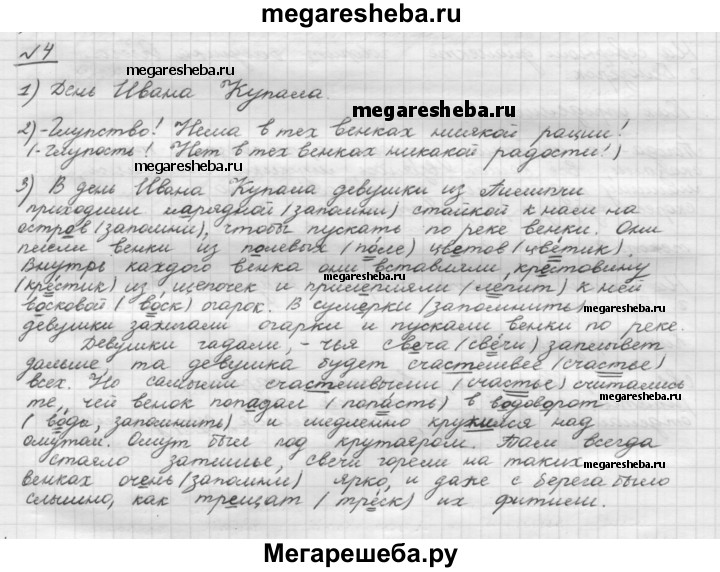 megaresheba.ru
№4
megaresheba.ru
1) День Ивана Купала.
megaresheba.ru
2) -Глупство! Нема в тех венках ниякой рации!
(-Глупость! Нет в тех венках никакой радости!)
megaresheba.ru
3) В день Ивана Купала девушки из
приходили нарядной (запомни) стайкой к нам на
остров (запомни), чтобы пускать по реке венки. Они
плели венки из полевых (поле) цветов (цветик).
megaresheba.ru
Внутрь каждого венка они вставляли крестовину
(крестик) из щепочек и прилепляли (лепит) к ней
восковой (воск) огарок. В сумерки (запомнить)
megaresheba.ru
девушки зажигали огарки и пускали венки по реке.
Девушки гадали, - чья свеча (свечи) заплывет
дальше, та девушка будет счастливее (счастье)
megaresheba.ru
всех. Но самыми счастливыми (счастье) считались
те, чей венок попадал (попасть) в водоворот
megaresheba.ru
(воды, запомнить) и медленно кружился над
омутам. Омут был под крутояром. Там всегда
стояло затишье, свечи горели на таких
megaresheba.ru
венках очень (запомни) ярко, и даже с берега было
слышно, как трещат (треск) их фитили.
megaresheba.ru
Мегарешеба.ру